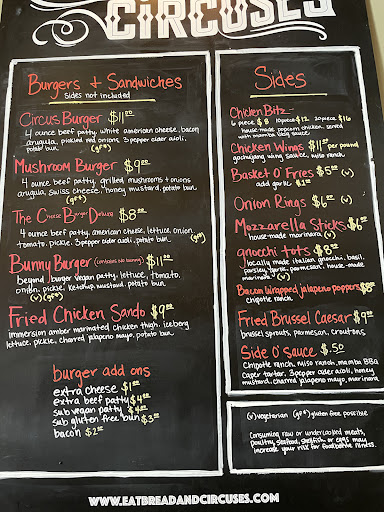 CIRCUSES
Burgers & Sandwiches
Sides not included
Circus Burger $11.00
4 ounce beef patty, white american cheese, bacon
arugula, pickled red onions, 3 pepper cider aioli,
potato bun (gf*)
Mushroom Burger $9.00
4 ounce beef patty, grilled mushrooms + onions
arugula, swiss cheese, honey mustard, potato bun.
(gf*)
The Cheese Burger Deluxe $8.00
4 ounce beef patty, american cheese, lettuce, onion,
tomato, pickle, 3 pepper cider aioli, potato bun. (gf*)
Bunny Burger (contains no bunny) $11.00
beyond burger vegan patty, lettuce, tomato,
onion, pickle, ketchup, mustard, potato bun.
(v) (gf*)
Fried Chicken Sando $9.00
immersion amber marinated chicken thigh, iceberg
lettuce, pickle, charred jalapeno mayo, potato bun
burger add ons
extra cheese $1.00
extra beef patty $4.00
sub vegan patty $4.00
sub gluten free bun $3.00
bacon $2.00
Sides
Chicken Bitz
6 piece $8 10 piece $12 20 piece $16
house-made popcorn chicken, served
with mamba bbq sauce
Chicken Wings $11.00 per pound
gochujang wing sauce, miso ranch.
Basket O' Fries $5.00 (v)
add garlic $1.00
Onion Rings $6.00 (v)
Mozzarella Sticks $6.00
house-made marinara (v)
gnocchi tots $8.00
locally made italian gnocchi, basil,
parsley, garlic, parmesan, house-made
marinara. (v)
Bacon Wrapped jalapeno poppers $8.00
chipotle ranch.
Fried Brussel Caesar $9.00
brussel sprouts, parmesan, croutons,
Side O' sauce $.50
Chipotle ranch, miso ranch, mamba BBQ
caper tartar, 3 pepper cider aioli, honey
mustard, charred jalapeno mayo, marinara
(v) vegetarian (gf*) gluten free possible
Consuming raw or undercooked meats,
poultry, seafood, shellfish or eggs may
increase your risk for foodborne illness.
WWW.EATBREADANDCIRCUSES.COM